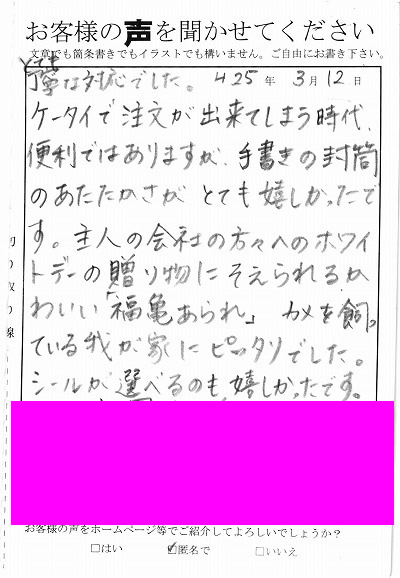 お客様の声を聞かせてください
文章でも箇条書きでもイラストでも構いません。ご自由にお書き下さい。
とても
丁寧な対応でした。 H25年 3月 12日
ケータイで注文が出来てしまう時代、
便利ではありますが、手書きの封筒
のあたたかさが とても嬉しかったで
す。主人の会社の方々へのホワイ
トデーの贈り物にそえられるか
わいい「福亀あられ」 カメを飼っ
ている我が家に ピッタリでした。
シールが選べるのも嬉しかったです。
切り取り線
お客様の声をホームページ等でご紹介してよろしいでしょうか?
□はい ☑匿名で □いいえ